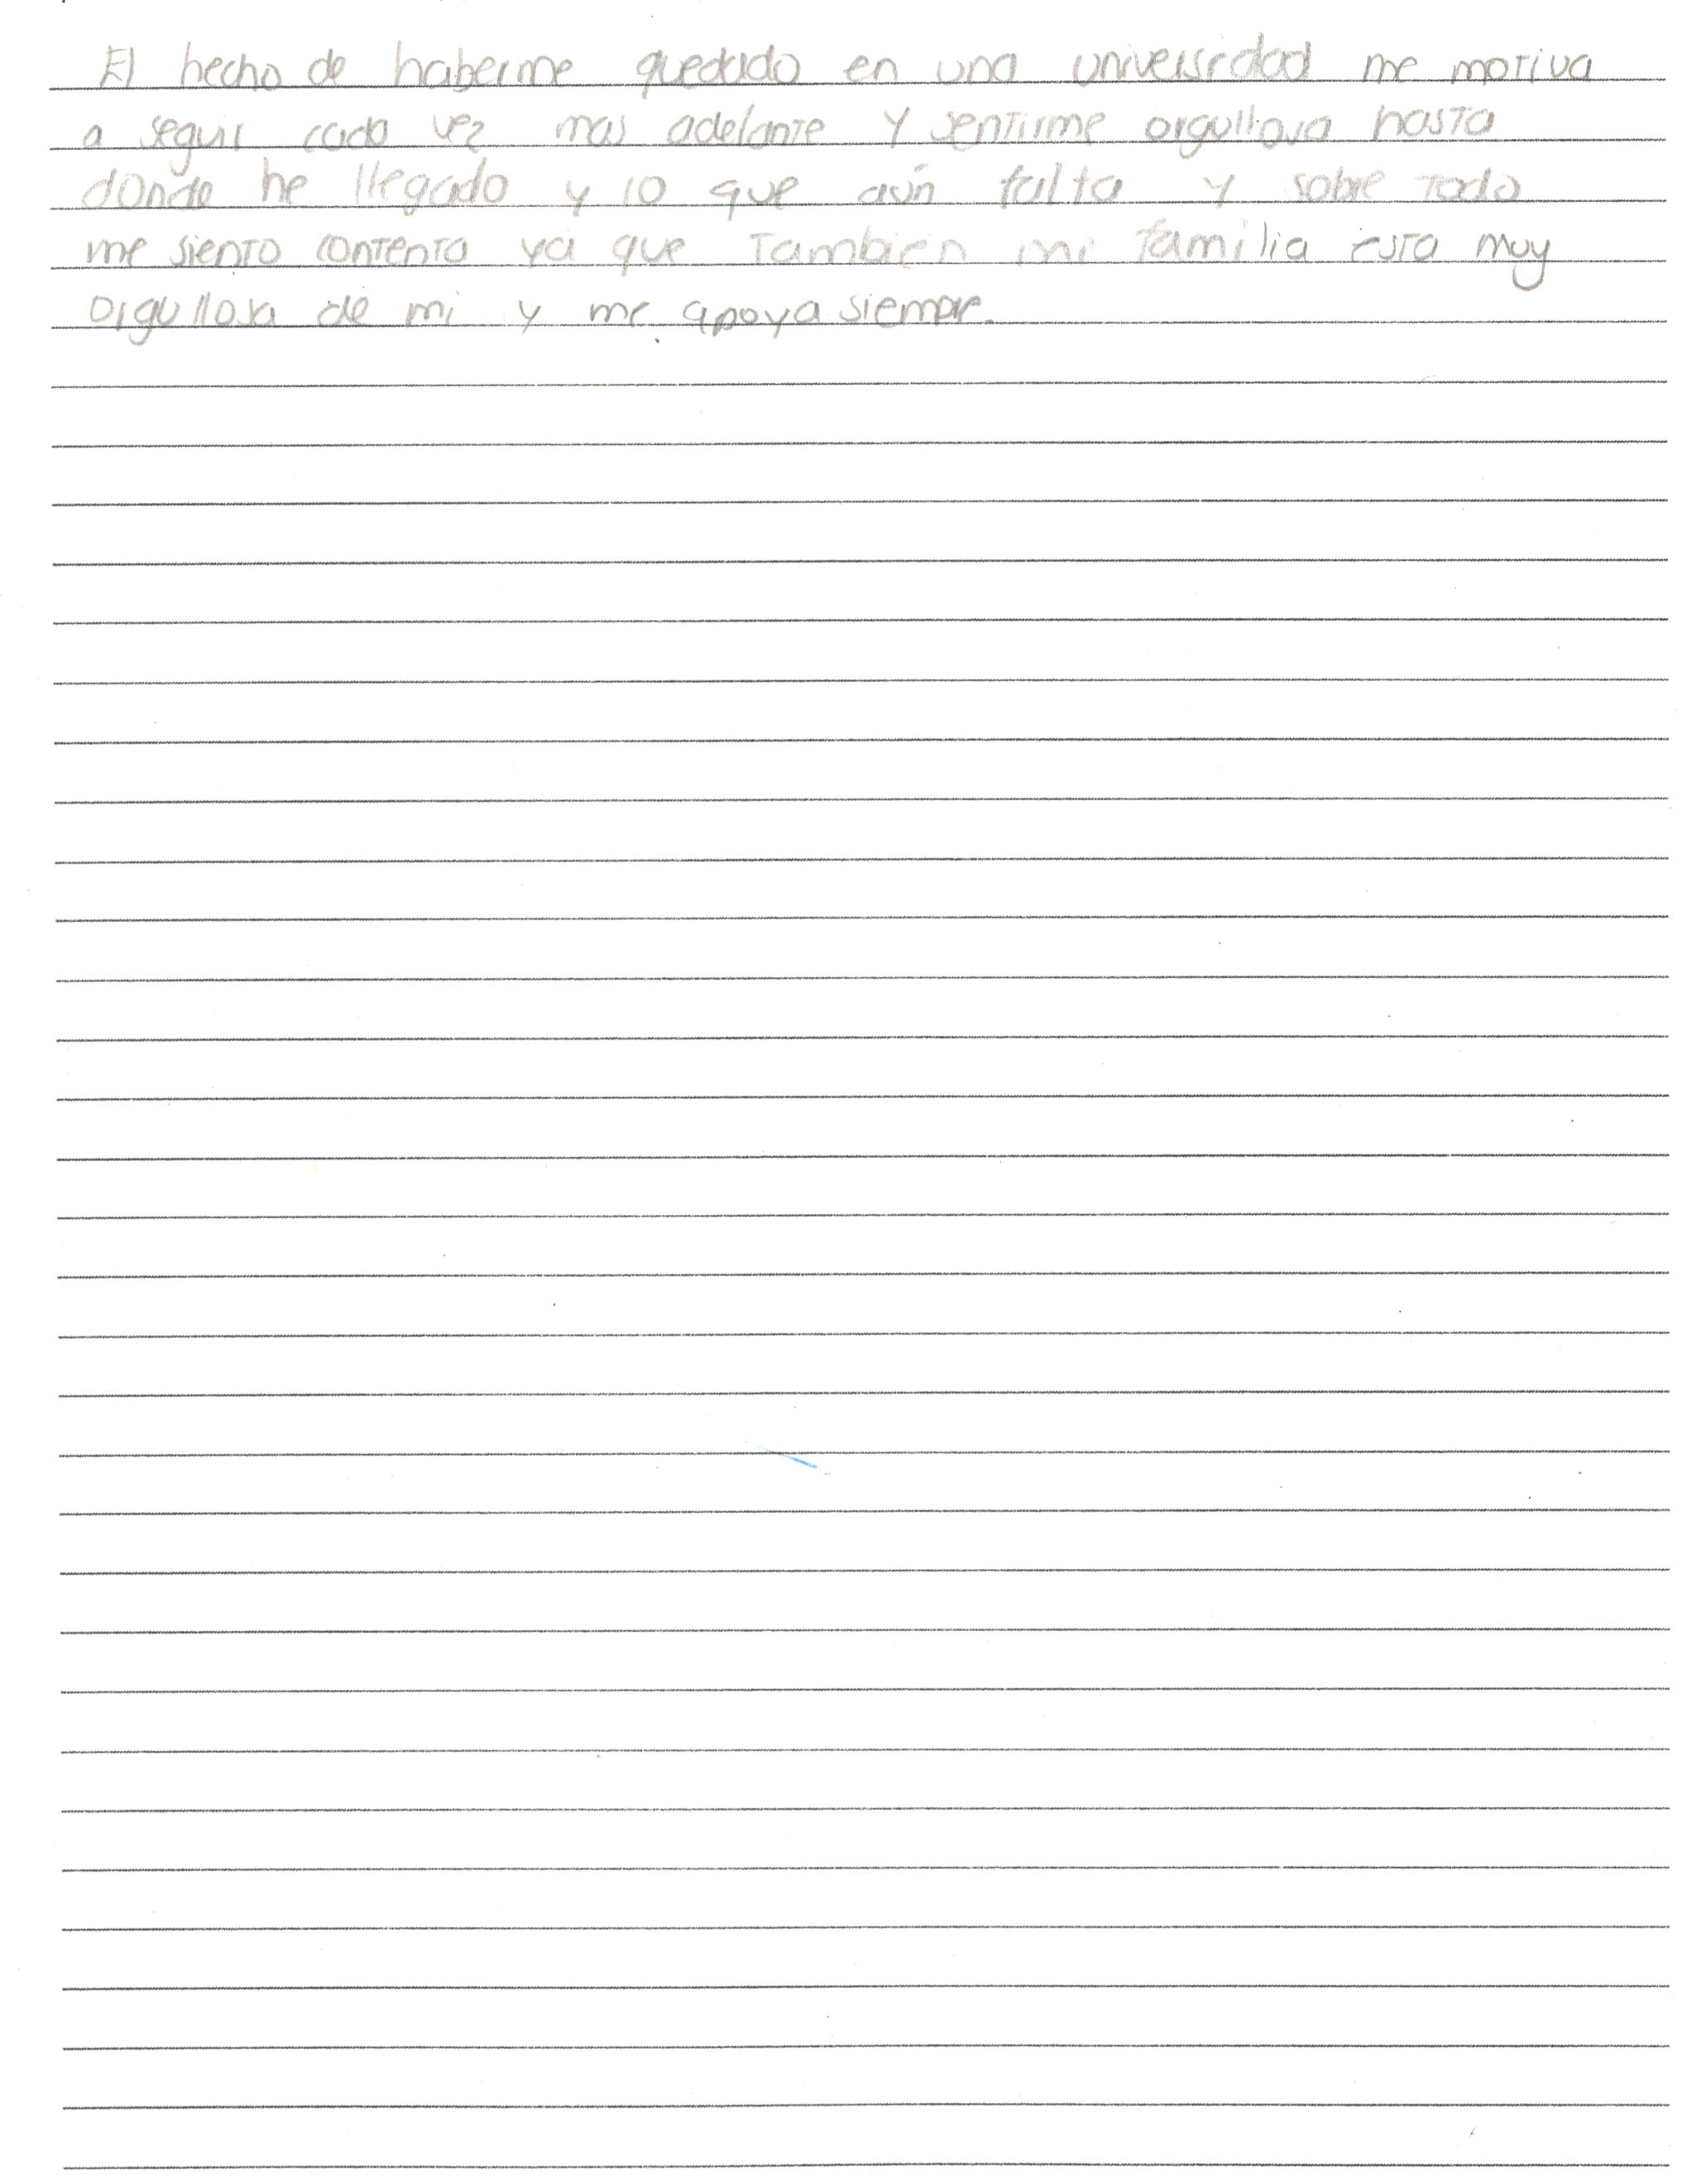 El hecho de haberme quedado en una universidad me motiva
a seguir cada vez mas adelante y sentirme orgullosa hasta
donde he llegado y lo que aún falta y sobre todo
me siento contenta ya que también mi familia esta muy
orgullosa de mi y me apoya siempre.